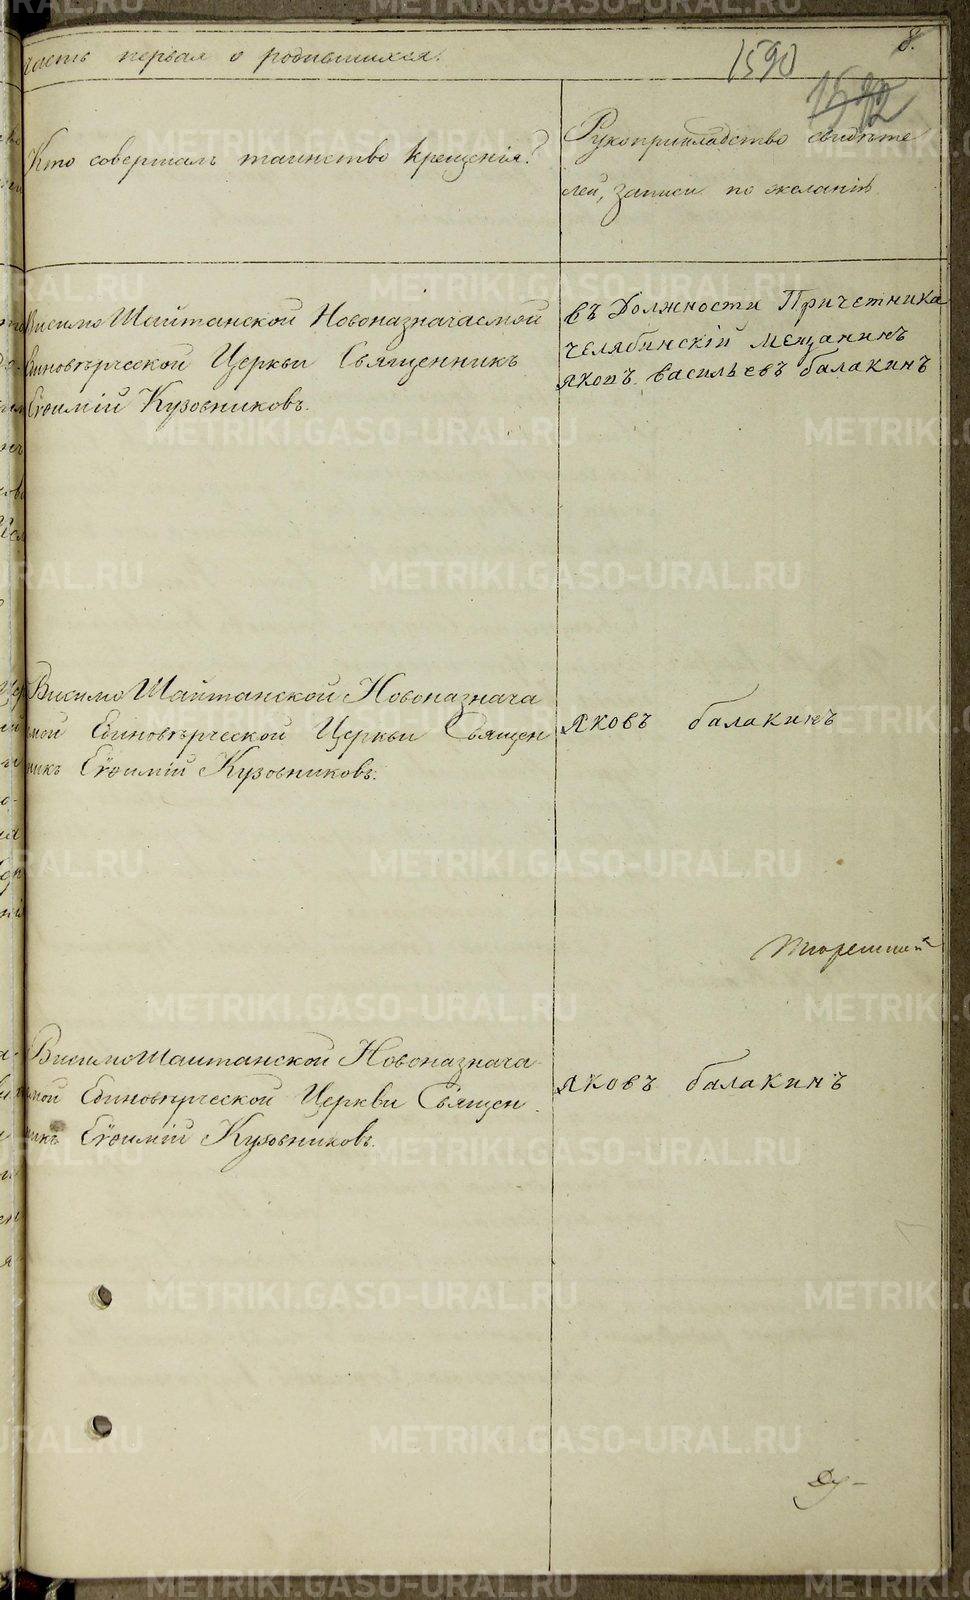 часть первая о родившихся.
1590
8.
1592
Кто совершалъ таинство крещенія?
Рукоприкладство свидѣте
лей, записи по желанію
Висимо Шайтанской Новоназначаемой
Единовѣрческой Церкви Священникъ
Евѳимій Кузовниковъ.
въ Должности Причетника
челябинскій мещанинъ
яковъ васильевъ балакинъ
Висимо Шайтанской Новоназнача
мой Единовѣрческой Церкви Священ
никъ Евѳимій Кузовниковъ.
яковъ балакинъ
Висимо Шайтанской Новоназнача
мой Единовѣрческой Церкви Священ
никъ Евѳимій Кузовниковъ.
яковъ балакинъ
METRIKI.GASO-URAL.RU